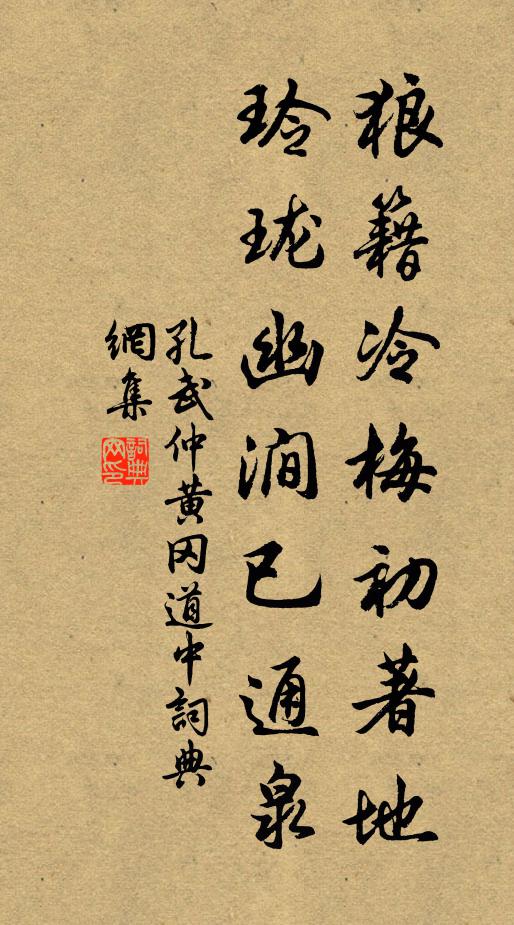 狼籍冷梅初著地
玲珑幽涧已通泉
孔武仲黄冈道中詞典
網集
詞典
网印